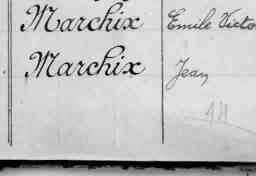 Marchix Emile Victo
Marchix Jean